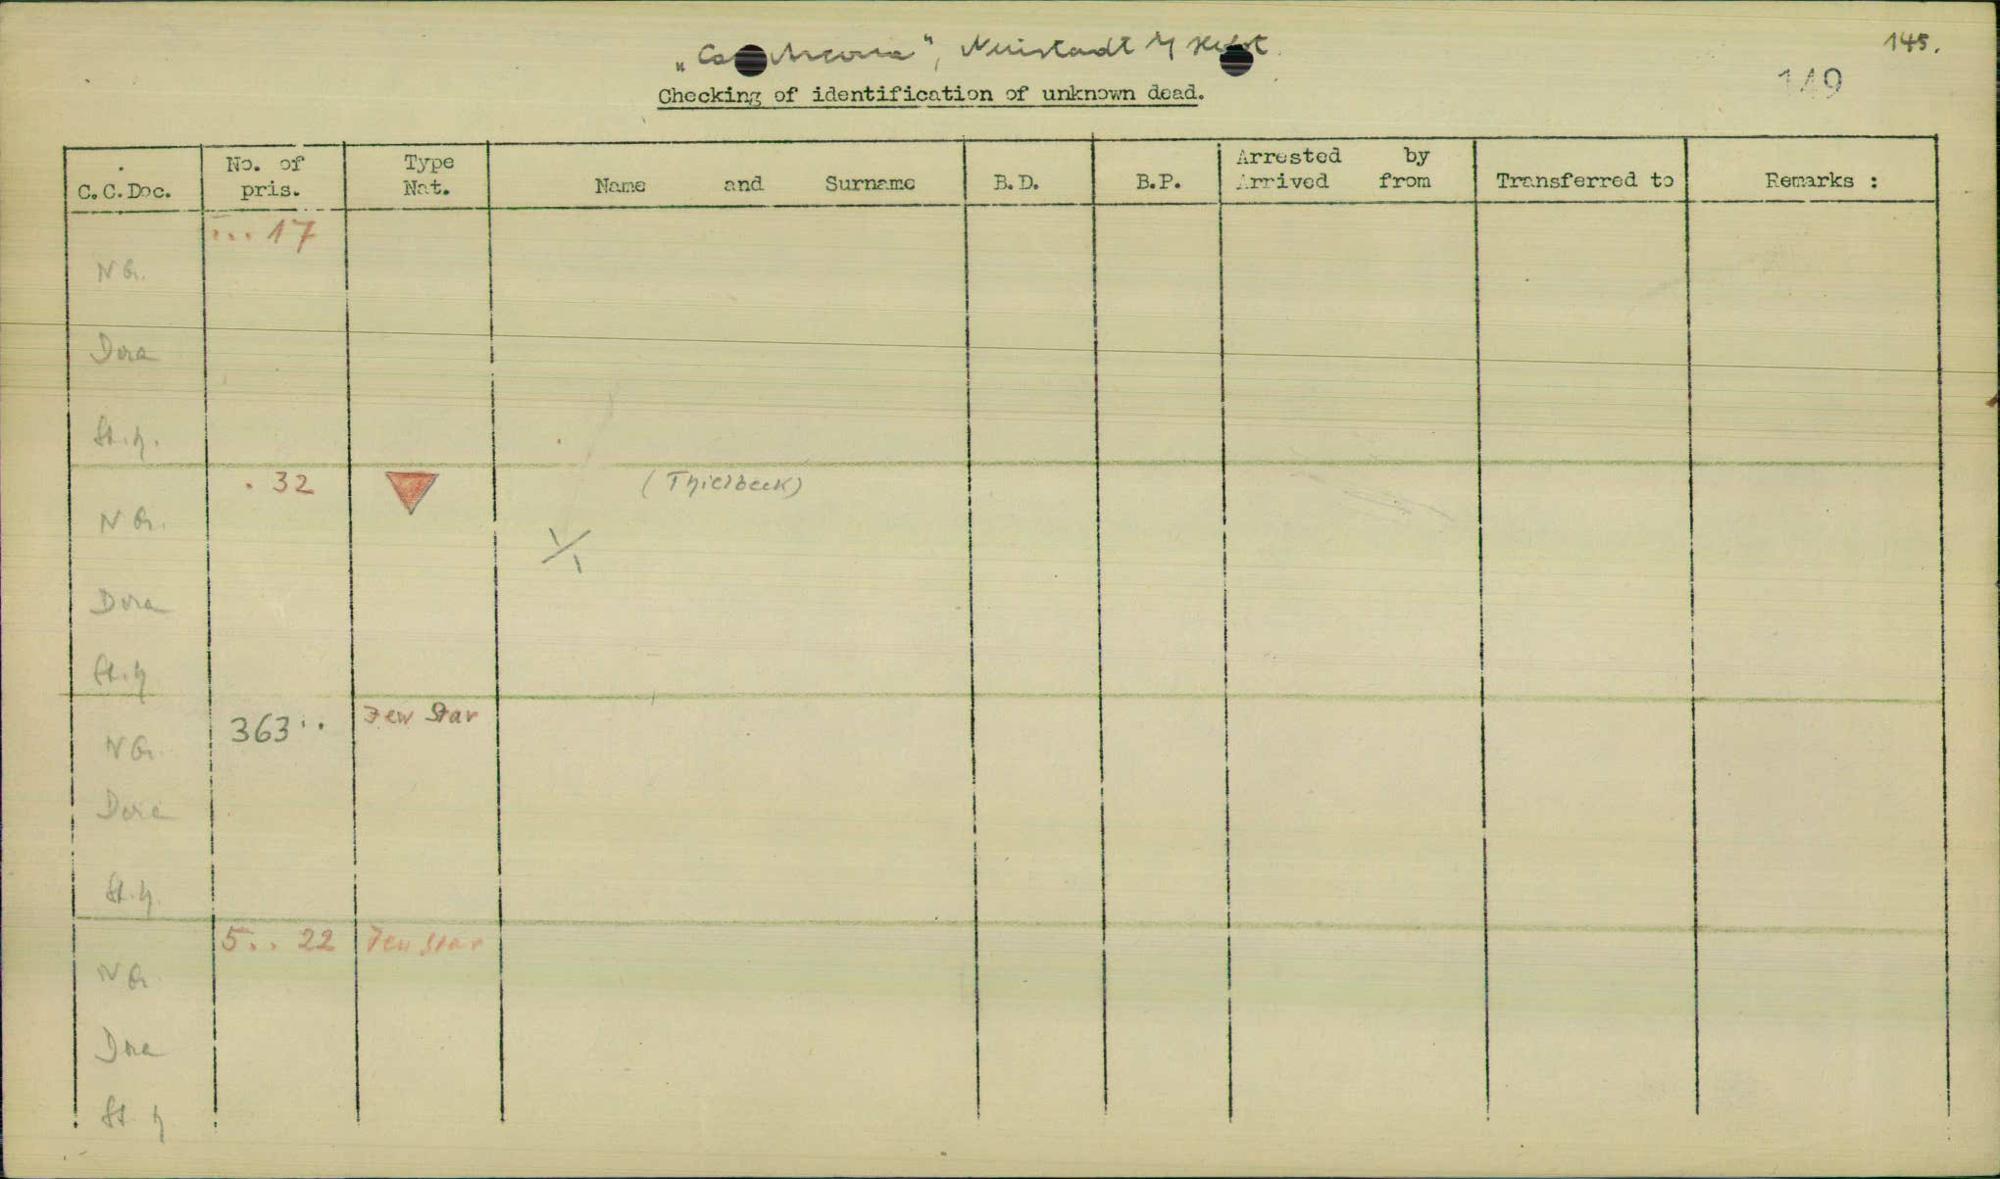 „Cap Arcona", Neustadt / Holst.
145.
149
Checking of identification of unknown dead.
C.C.Doc.
No. of pris.
Type Nat.
Name and Surname
B.D.
B.P.
Arrested by
Arrived from
Transferred to
Remarks :
... 17
N G.
Dora
St. H.
. 32
(Thielbeck)
N G.
Dora
St. H
363 ..
Jew Star
N G.
Dora
St. H.
5 .. 22
Jew Star
N G.
Dora
St. H